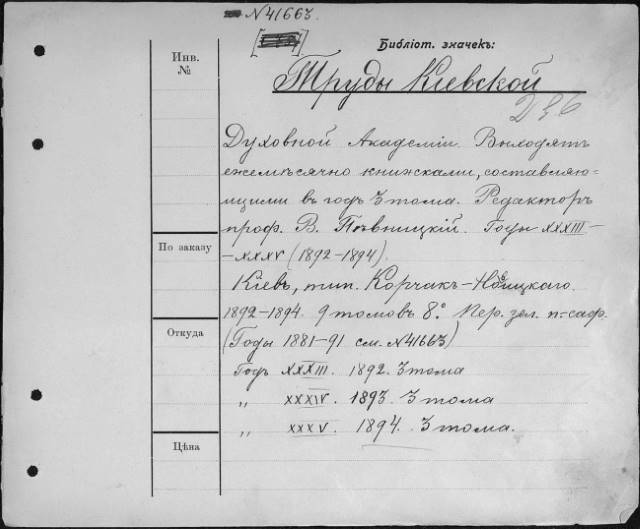 №41663.
Библіот. значекъ:
Инв.
№
Труды Кіевской
Духовной Академіи. Выходятъ
ежемѣсячно книжками, составляю-
щими въ годъ 3 тома. Редакторъ
проф. В. Пѣвницкій. Годы XXXIII-
По заказу
-XXXV (1892-1894).
Кіевъ, тип. Корчакъ-Новицкаго.
1892-1894. 9 томовъ 8.º Пер. зел. п-саф.
Откуда
(Годы 1881-91 см. №41663)
Годъ XXXIII. 1892. 3 тома
„ XXXIV. 1893. 3 тома
„ XXXV. 1894. 3 тома.
Цѣна